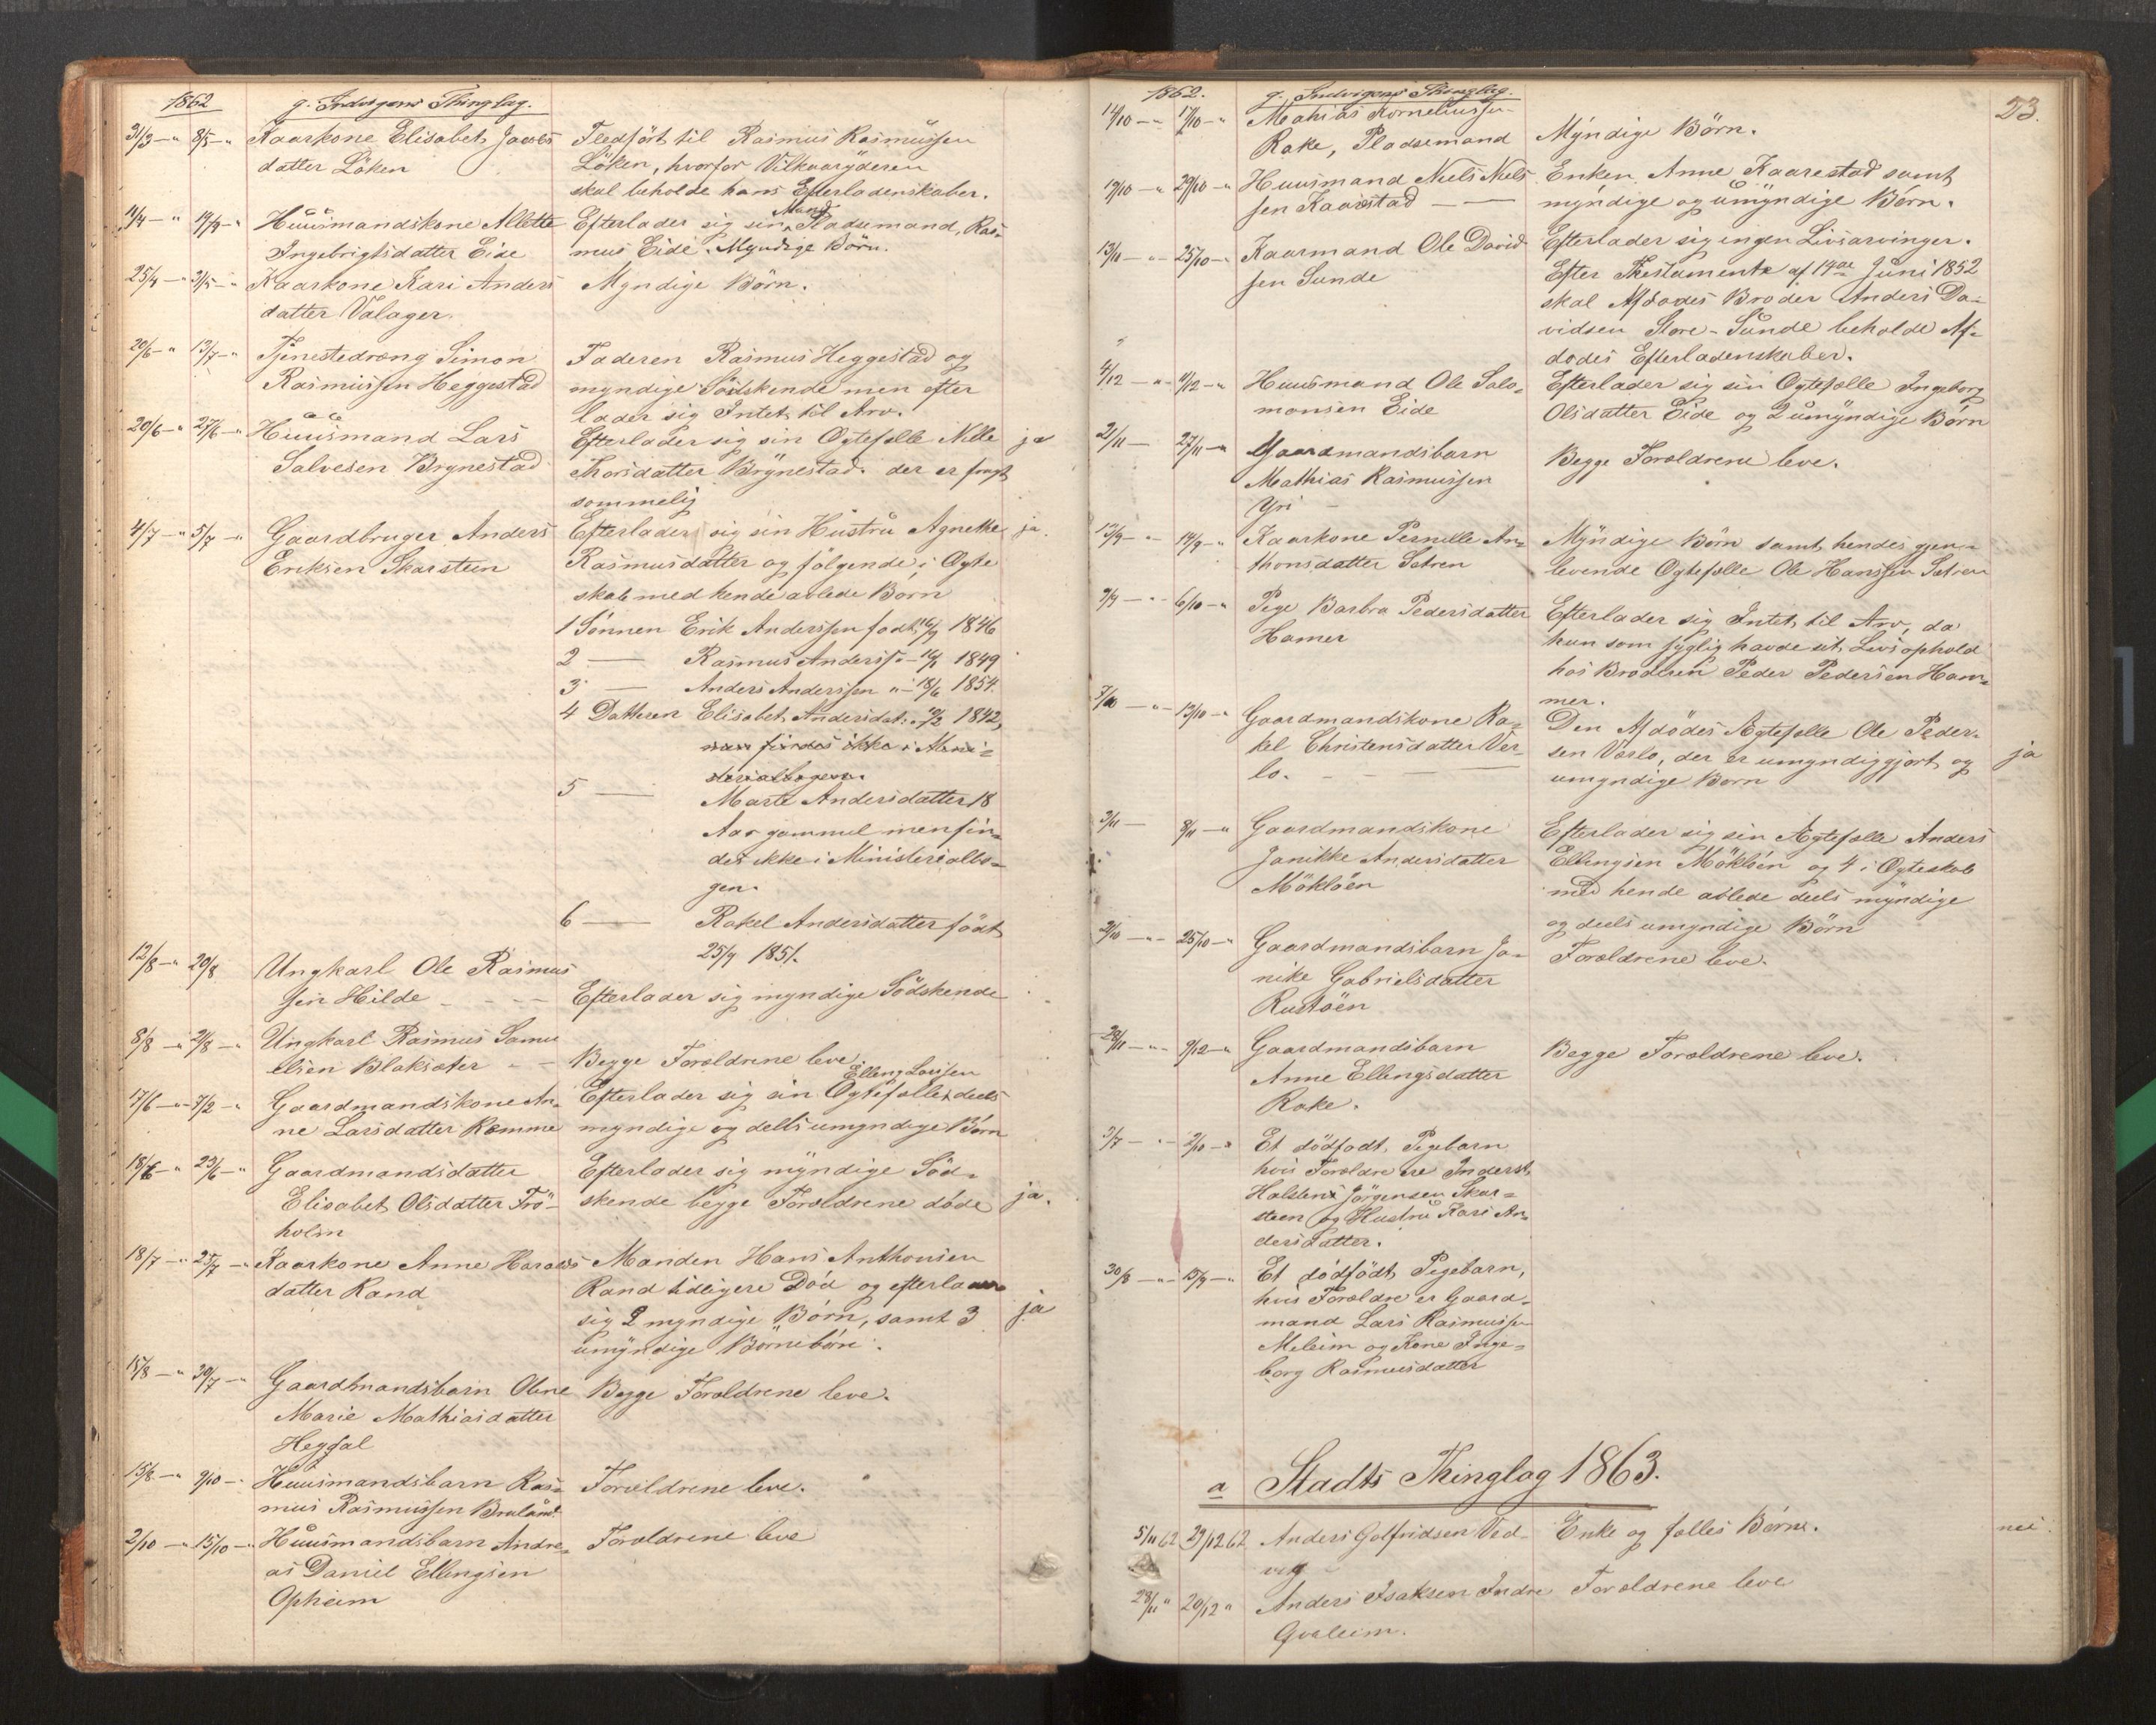 1862
g. Indvigens Thinglag.
31/3 - " 8/5 - " Kaarkone Elisabet Jacobs Fledfört til Rasmus Rasmussen
datter Löken Löken, hvorfor Vilkaaryderen
skal beholde hans Efterladenskaber.
4/4 - " 19/4 - " Huusmandskone Allette Efterlader sig sin Mand Pladsemand, Ras-
Ingebrigtsdatter Eide mus Eide. Myndige Börn.
25/4 - " 3/5 - " Kaarkone Kari Anders Myndige Börn.
datter Valager.
20/6 - " 13/7 - " Tjenestedreng Simon Faderen Rasmus Heggestad og
Rasmussen Heggestad myndige Södskende men efter
lader sig Intet til Arv.
20/6 - " 27/6 - " Huusmand Lars Efterlader sig sin Ægtefælle Nille ja
Salvesen Brynestad Thorsdatter Brynestad. der er frugt
sommelig
4/7 - " 5/7 - " Gaardbruger Anders Efterlader sig sin Hustru Agnethe ja.
Eriksen Skarstein Rasmusdatter og fölgende i Ægte
skab med hende avlede Börn
1 Sönnen Erik Anderssen födt 16/9 1846
2 — Rasmus Anderss. - 16/1 1849
3 — Anders Anderssen " - 18/6 1854.
4 Datteren Elisabet Andersdat. " 10/3 1842,
man findes ikke i Mini-
sterialbogen.
5 — Marte Andersdatter 18
Aar gammel men fin-
des ikke i Ministerialbo-
gen.
6 — Rakel Andersdatter födt
25/4 1851.
12/8 - " 20/8 Ungkarl Ole Rasmus
sen Hilde - - - Efterlader sig myndige Södskende
8/8 - " 21/8 - " Ungkarl Rasmus Samu
elsen Blaksæter - - Begge Forældrene leve.
Elling Larssen
17/6 - " 7/2 - " Gaardmandskone An- Efterlader sig sin Ægtefælle deels
ne Larsdatter Ræmme myndige og deels umyndige Börn
18/6 - " 23/6 - " Gaardmandsdatter Efterlader sig myndige Söd-
Elisabet Olsdatter Frö- skende begge Forældrene döde ja.
holm
18/7 - " 25/7 - " Kaarkone Anne Harals Manden Hans Anthonsen
datter Rand Rand tidligere Död og efterlader
sig 2 myndige Börn, samt 3 ja
umyndige Börnebörn.
15/8 - " 30/7 - " Gaardmandsbarn Oline Begge Forældrene leve.
Marie Mathiasdatter
Hegdal
15/8 - " 9/10 - " Huusmandsbarn Ras- Forældrene leve.
mus Rasmussen Bruland
2/10 - " 15/10 - " Huusmandsbarn Andre- Forældrene leve
as Daniel Ellingsen
Opheim
1862. g. Indvigens Thinglag. 23.
14/10 - " 17/10 - " Mathias Korneliussen
Rake, Pladsemand Myndige Börn.
19/10 - " 29/10 - " Huusmand Niels Niels Enken Anne Kaarestad samt
sen Kaarstad — myndige og umyndige Börn.
13/11 - " 25/10 - " Kaarmand Ole David Efterlader sig ingen Livsarvinger.
sen Sunde Efter Thestamente af 14de Juni 1852
skal Afdödes Broder Anders Da-
vidsen Store-Sunde beholde Af-
dödes Efterladenskaber.
4/12 - " 11/12 - " Huusmand Ole Salo- Efterlader sig sin Ægtefælle Ingeborg
monsen Eide Olsdatter Eide og 2 umyndige Börn
21/11 - 27/11 - " Gaardmandsbarn Begge Forældrene leve.
Mathias Rasmussen
Yri -
13/9 - " 19/9 - " Kaarkone Pernille An- Myndige Börn samt hendes gjen-
thonsdatter Sætren levende Ægtefælle Ole Hanssen Sætren
9/9 - " 6/10 - " Pige Barbra Pedersdatter Efterlader sig Intet til Arv, da
Hamer hun som syglig havde sit Livsophold
hos Broderen Peder Pedersen Ham-
mer.
7/10 - " 13/10 - " Gaardmandskone Ra- Den Afdödes Ægtefælle Ole Peder-
kel Christensdatter Ver- sen Verlo, der er umyndiggjort og ja
lo. - - - umyndige Börn
3/11 - 8/11 - " Gaardmandskone Efterlader sig sin Ægtefælle Anders
Janikke Andersdatter Ellingsen Mökleën og 4 i Ægteskab
Mökleën med hende avlede deels myndige
og deels umyndige Börn
2/10 - " 25/10 - " Gaardmandsbarn Ja- Forældrene leve.
nike Gabrielsdatter
Rustöen
28/11 - " 9/12 - " Gaardmandsbarn Begge Forældrene leve.
Anne Ellingsdatter
Rake.
3/7 - " 2/10 - " Et dödfödt Pigebarn
hvis Forældre ere Inderst
Halsten Jörgensen Skar-
steen og Hustru Kari An-
dersdatter.
30/8 - " 15/9 - " Et dödfödt Pigebarn,
hvis Forældre er Gaard-
mand Lars Rasmussen
Meleim og Kone Inge-
borg Rasmusdatter
a Stadts Thinglag 1863.
5/11 62 29/12 62 Anders Golfridsen Ved- Enke og fælles Börn. nei.
vig
28/11 " 20/12 " Anders Isaksen Indre Forældrene leve
Qvaleim.